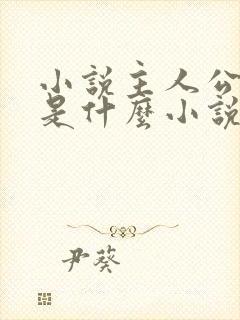 小説主人公
是什麼小說
尹葵